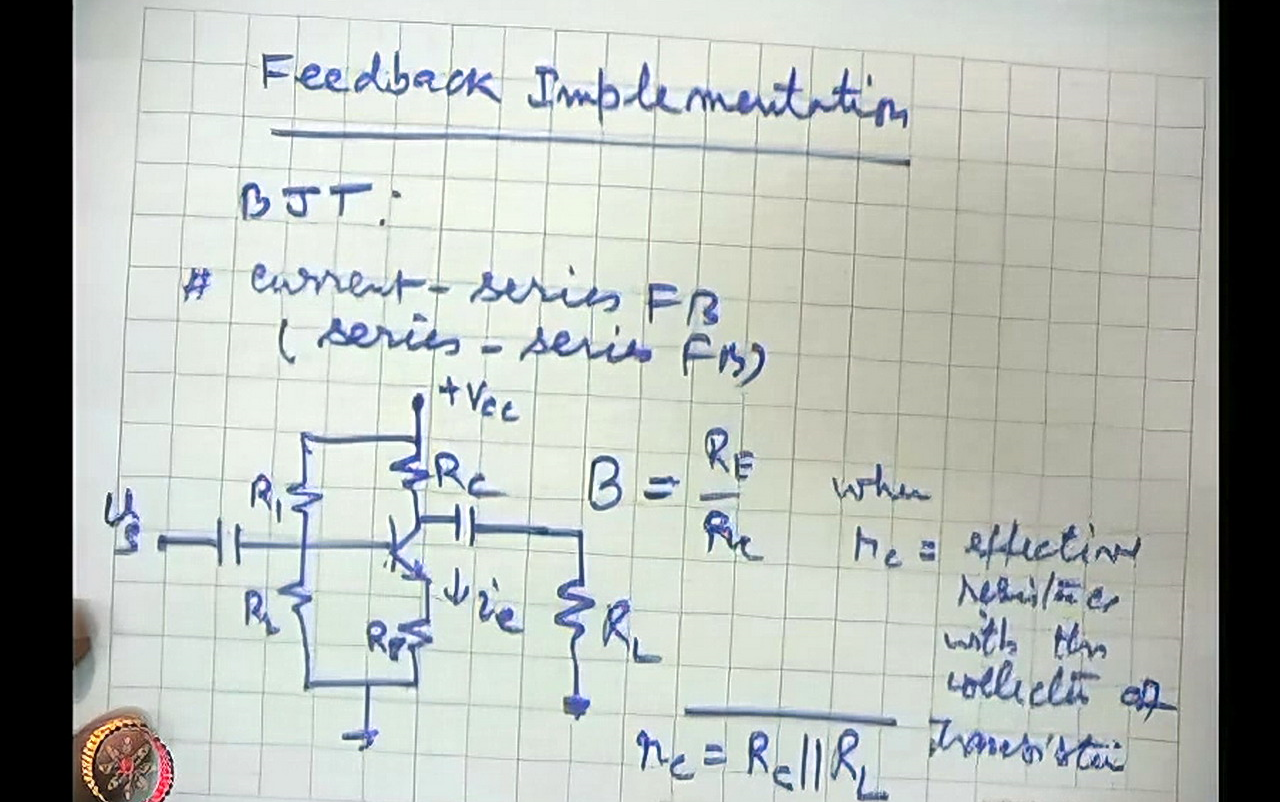 Feedback Implementation
BJT:
# current - series FB
(series - series FB)
+Vcc
RC
R1
B = RE
rc
when
rc = effective
resistance
with the
collector of
Transistor
υs
R2
RE
↓ie
RL
rc = Rc||RL